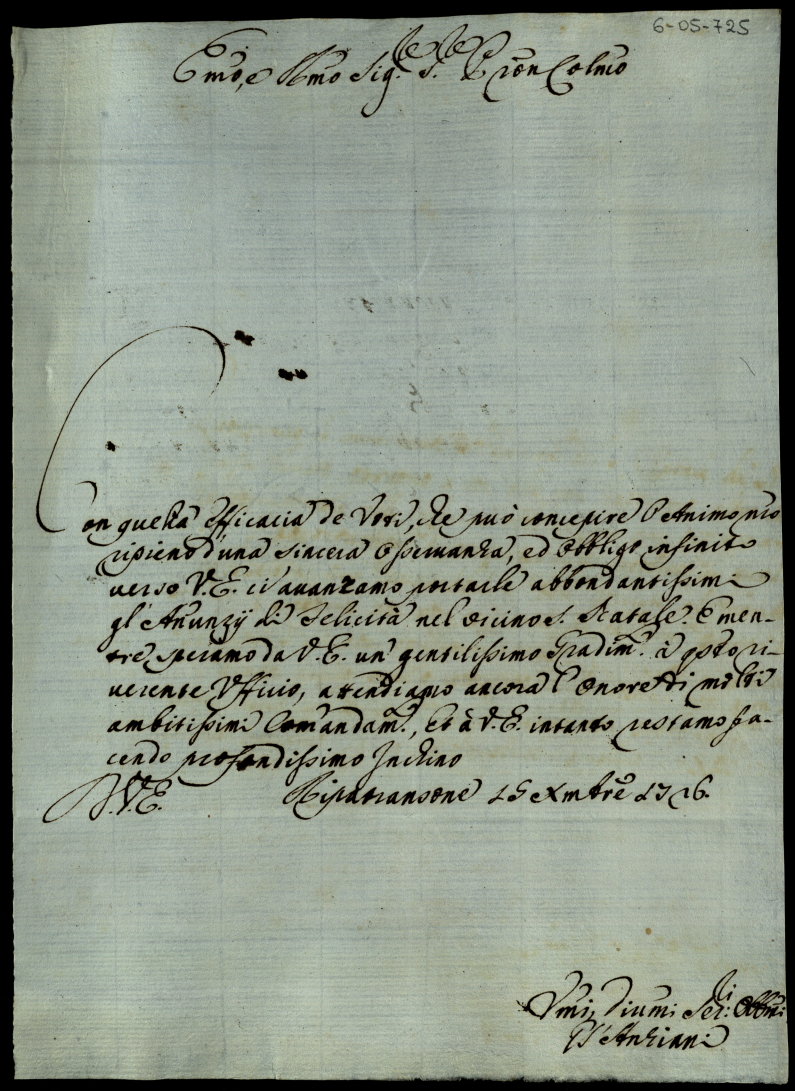 6-05-725
Emo, e Rmo Sig.re S.re P̃ron Colmo
Con quella Efficacia de Voti, che può concepire l'Animo nro
ripieno d'una sincera Osservanza, ed Obbligo infinito
verso V.E. ci avanzamo portarle abbondantissimi
gl'Anunzÿ di Felicità nel vicino S. Natale. E men-
tre speriamo da V.E. un gentilissimo Gradim.to à qsto ri-
verente Ufficio, attendiamo ancora l'onore di molti
ambitissimi Comandam.ti, et à V.E. intanto restamo fa-
cendo profondissimo Inchino
D.V.E. Ripatransone 15 Xmbre 1726.
Umi, Diumi Ser.ri Obbmi
Gl'Anziani